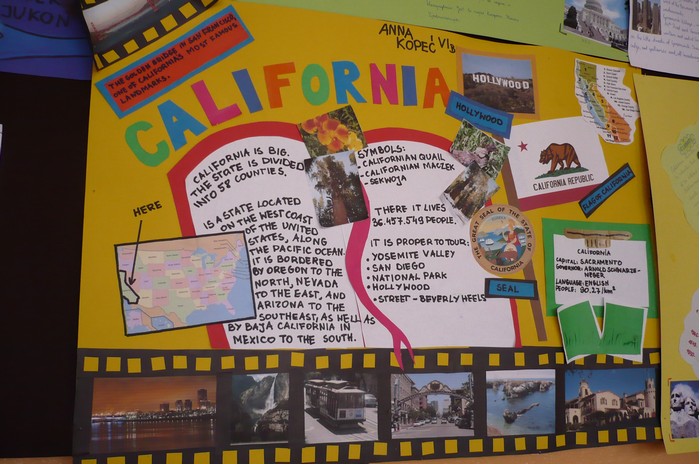 JUKON
ANNA
KOPEĆ VI B
THE GOLDEN BRIDGE IN SAN FRANCISCO,
ONE OF CALIFORNIA'S MOST FAMOUS
LANDMARKS.
CALIFORNIA
HOLLYWOOD
HOLLYWOOD
CALIFORNIA REPUBLIC
FLAG OF CALIFORNIA
CALIFORNIA IS BIG.
THE STATE IS DIVIDED
INTO 58 COUNTIES.
IS A STATE LOCATED
ON THE WEST COAST
OF THE UNITED
STATES, ALONG
THE PACIFIC OCEAN.
IT IS BORDERED
BY OREGON TO THE
NORTH, NEVADA
TO THE EAST, AND
ARIZONA TO THE
SOUTHEAST, AS WELL AS
BY BAJA CALIFORNIA IN
MEXICO TO THE SOUTH.
HERE
SYMBOLS:
- CALIFORNIAN QUAIL
- CALIFORNIAN MACZEK
- SEKWOJA
THERE IT LIVES
36.457.549 PEOPLE.
IT IS PROPER TO TOUR:
• YOSEMITE VALLEY
• SAN DIEGO
• NATIONAL PARK
• HOLLYWOOD
• STREET - BEVERLY HEELS
THE GREAT SEAL OF THE STATE OF CALIFORNIA
SEAL
CALIFORNIA
CAPITAL: SACRAMENTO
GOVERNOR: ARNOLD SCHWARZE-
NEGER
LANGUAGE: ENGLISH
PEOPLE: 90.27/km²